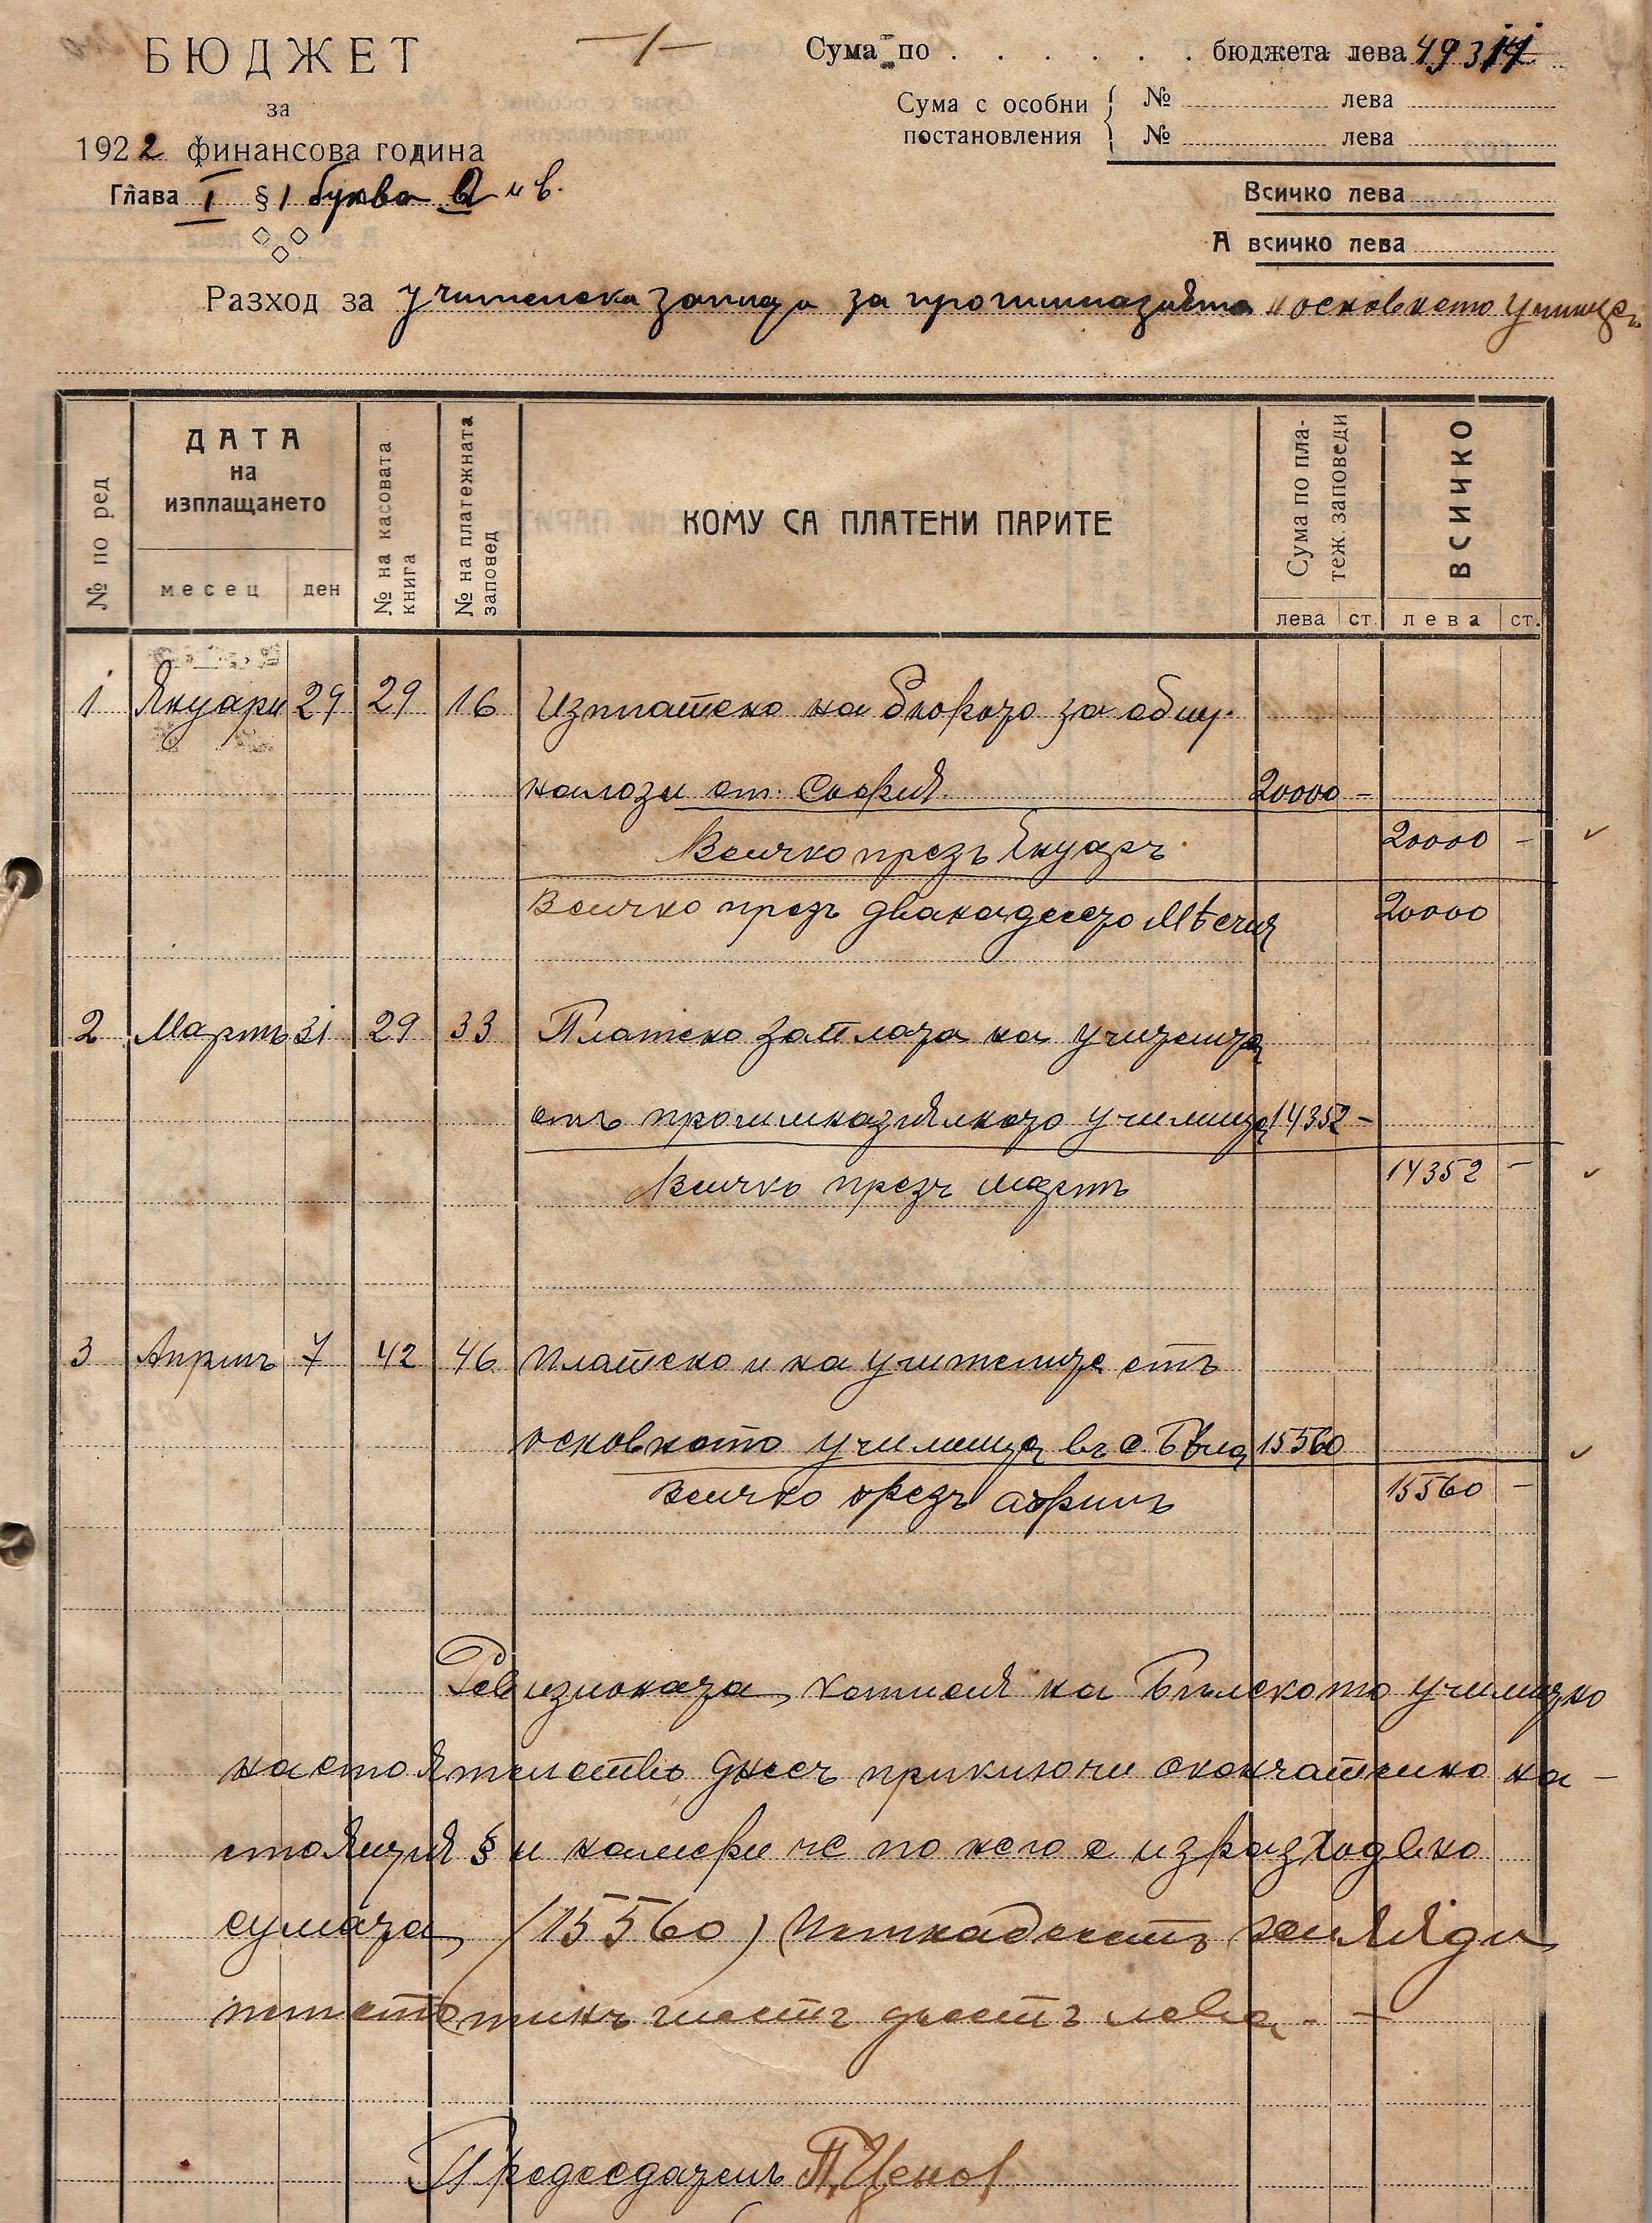 БЮДЖЕТ
за
1922 финансова година
Глава I § 1 буква а и в.
—/—
Сума по . . . . . . бюджета лева
Сума с особни постановления
№ лева
№ лева
Всичко лева
А всичко лева
Разход за учителска заплата за прогимназията и основното училище
№ по ред
ДАТА
на
изплащането
месец
ден
№ на касовата книга
№ на платежната заповед
КОМУ СА ПЛАТЕНИ ПАРИТЕ
Сума по платеж заповеди
ВСИЧКО
лева ст. лева ст.
1 Януари 29 29 16 Изплатено на бюрото за общ.
налози от София 20000 -
Всичко презъ Януаръ 20000 -
Всичко презъ дванадесето месечия 20000
2 Мартъ 31 29 33 Платено заплата на учителите
отъ прогимназиялното училище 14352 -
Всичко презъ мартъ 14352 -
3 Априлъ 7 42 46 Платено и на учителите отъ
основното училище въ с. Бѣла 15560
Всичко презъ априлъ 15560 -
Ревизионата комисия на Бѣлското училищно
настоятелство днесъ приключи окончателно на-
стоящия § и намери че по него е изразходвано
сумата (15560) петнадесетъ хиляди
петстотинъ шестъ десетъ лева. —
Председателъ П. Ценов